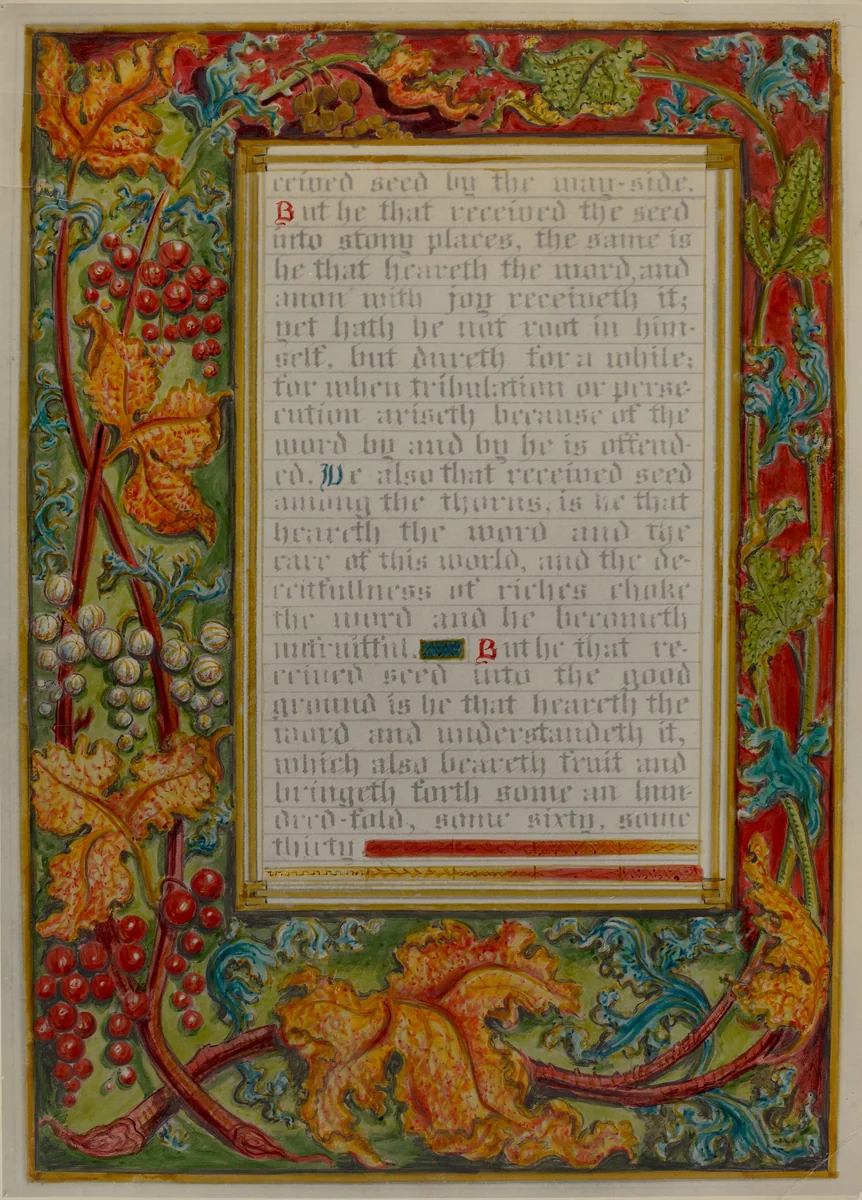 ceived seed by the way-side.
But he that received the seed
into stony places, the same is
he that heareth the word, and
anon with joy receiveth it;
yet hath he not root in him-
self, but dureth for a while;
for when tribulation or perse-
cution ariseth because of the
word by and by he is offend-
ed. He also that received seed
among the thorns, is he that
heareth the word and the
care of this world, and the de-
ceitfullness of riches choke
the word and he becometh
unfruitful. But he that re-
ceived seed into the good
ground is he that heareth the
word and understandeth it,
which also beareth fruit and
bringeth forth some an hun-
dred-fold, some sixty, some
thirty